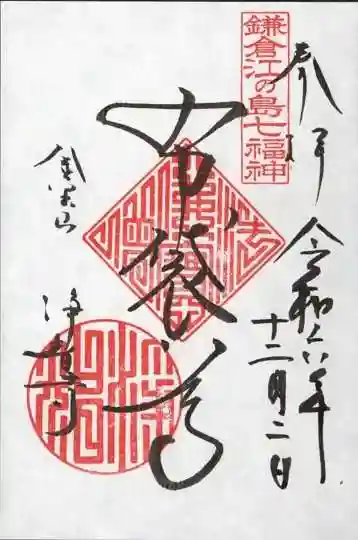 奉拝
令和六年
十二月二日
鎌倉江の島七福神
布袋尊
金宝山
浄智寺